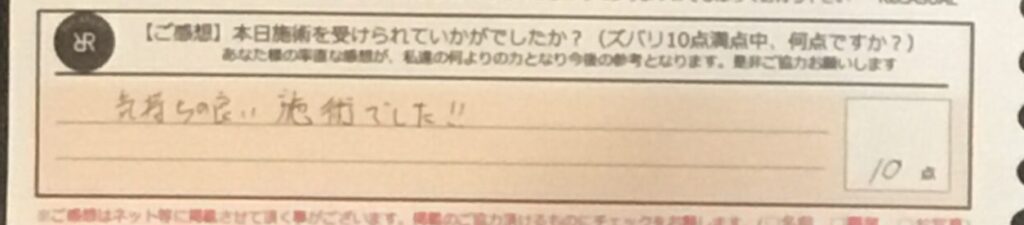 【ご感想】本日施術を受けられていかがでしたか？（ズバリ10点満点中、何点ですか？）
あなた様の率直な感想が、私達の何よりの力となり今後の参考となります。是非ご協力お願いします
気持ちの良い施術でした!!
10点
※ご感想はネット等に掲載させて頂く事がございます。掲載のご協力頂けるものにチェックをお願いします